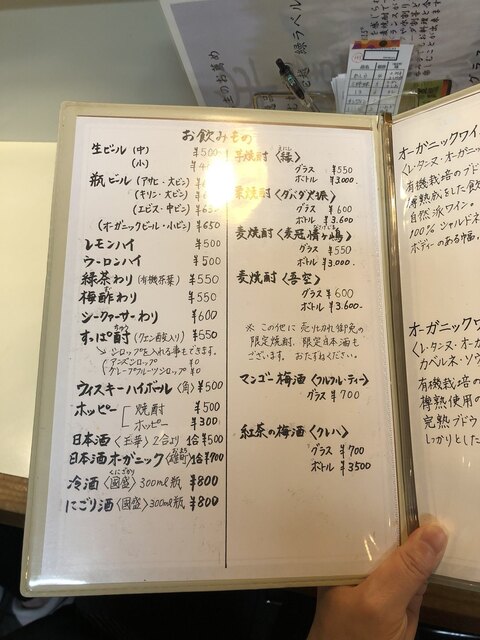 お飲みもの
生ビール (中) ¥500
(小)
瓶ビール (アサヒ・大ビン)
(キリン・大ビン)
(エビス・中ビン)
(オーガニックビール・小ビン) ¥650
レモンハイ ¥500
ウーロンハイ ¥500
緑茶わり (有機茶葉) ¥550
梅酢わり ¥550
シークァーサーわり ¥600
すっぱ酎 (クエン酸入り) ¥550
シロップを入れる事もできます。
(アンズシロップ ¥0
(グレープフルーツシロップ ¥0
ウィスキーハイボール〈角〉 ¥500
ホッピー 焼酎 ¥500
ホッピー ¥300
日本酒〈玉華〉2合より 1合¥500
日本酒オーガニック〈雄町〉 1合¥700
冷酒〈國盛〉300ml瓶 ¥800
にごり酒〈國盛〉300ml瓶 ¥800
芋焼酎〈縁〉
グラス ¥550
ボトル ¥3.000
栗焼酎〈ダバダ火振〉
グラス ¥600
ボトル ¥3.600
麦焼酎
グラス ¥550
ボトル ¥3.000
麦焼酎〈吾空〉
グラス ¥600
ボトル ¥3.600
※ この他に売り切れ御免の
限定焼酎、限定日本酒も
ございます。おたずねください。
マンゴー梅酒〈フルフル・ティー〉
グラス ¥700
紅茶の梅酒〈クレハ〉
グラス ¥700
ボトル ¥3500
オーガニックワイ
〈レ・タンヌ・オーガニ
有機栽培のブド
樽熟成した飲
自然派ワイン。
100% シャルドネ
ボディーのある幅。
オーガニックワ
〈レ・タンヌ・オー
カベルネ・ソウ
有機栽培の
樽熟使用の
完熟ブドウ
しっかりとした
緑ラベル
グラス